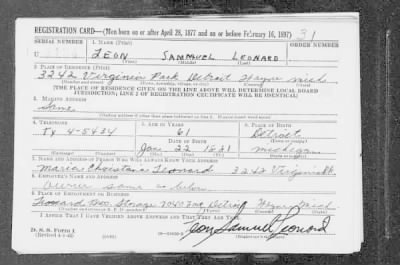 REGISTRATION CARD—(Men born on or after April 28, 1877 and on or before February 16, 1897) 31
SERIAL NUMBER 1. NAME (Print) ORDER NUMBER
U LEON SAMMUEL LEONARD
(First) (Middle) (Last)
2. PLACE OF RESIDENCE (Print)
3242 Virginia Park Detroit Wayne Mich
(Number and street) (Town, township, village, or city) (County) (State)
[THE PLACE OF RESIDENCE GIVEN ON THE LINE ABOVE WILL DETERMINE LOCAL BOARD
JURISDICTION; LINE 2 OF REGISTRATION CERTIFICATE WILL BE IDENTICAL]
3. MAILING ADDRESS
Same
(Mailing address if other than place indicated on line 2. If same insert word same)
4. TELEPHONE 5. AGE IN YEARS 6. PLACE OF BIRTH
Ty 4-5434 61 Detroit
DATE OF BIRTH (Town or county)
Jan 22 1881 Michigan
(Exchange) (Number) (Mo.) (Day) (Yr.) (State or country)
7. NAME AND ADDRESS OF PERSON WHO WILL ALWAYS KNOW YOUR ADDRESS
Leonard 3242 Virginia Pk
8. EMPLOYER'S NAME AND ADDRESS
owner same as below
9. PLACE OF EMPLOYMENT OR BUSINESS
Leonard Bro. Storage Detroit Wayne Mich
(Number and street or R. F. D. number) (Town) (County) (State)
I AFFIRM THAT I HAVE VERIFIED ABOVE ANSWERS AND THAT THEY ARE TRUE.
D. S. S. Form 1
(Revised 4-1-42) (over) Leon Samuel Leonard
(Registrant's signature)